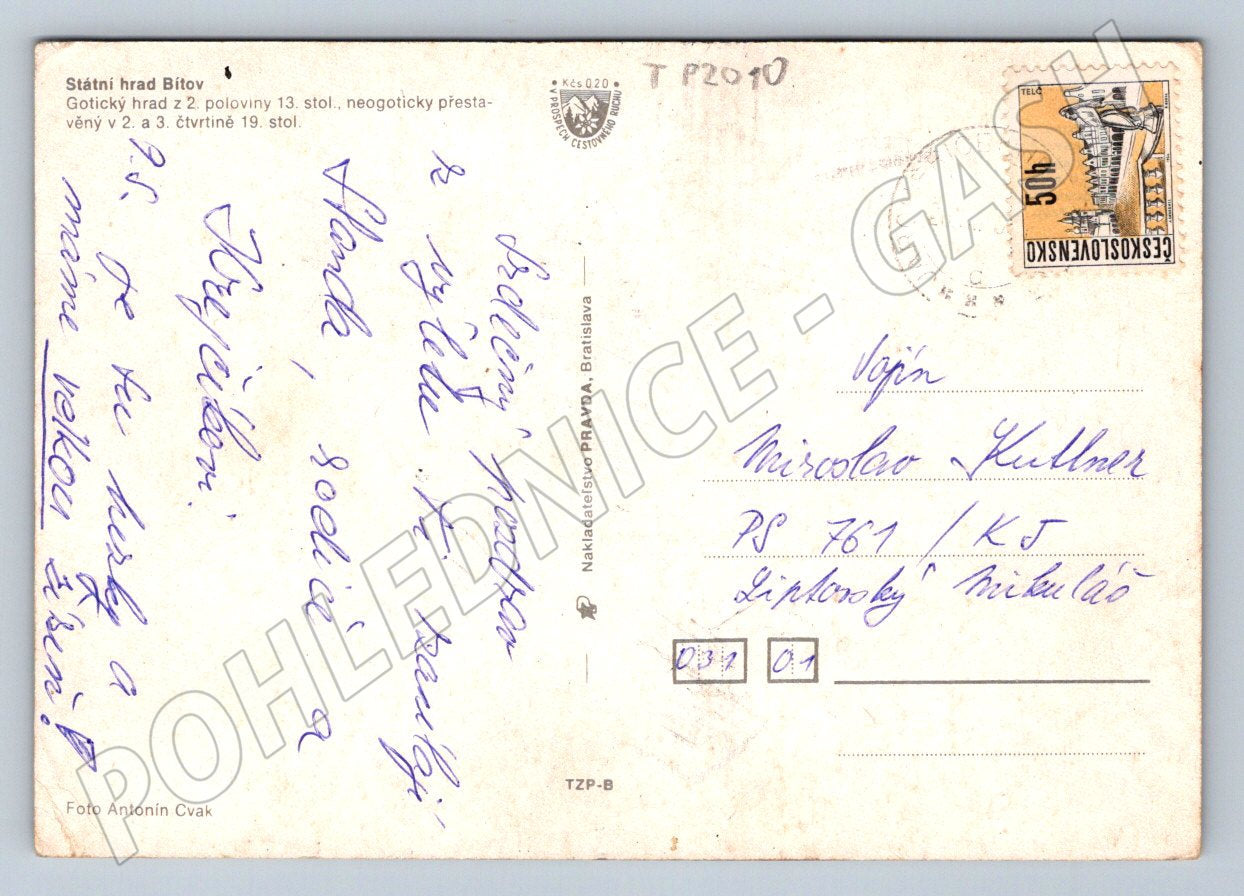 Státní hrad Bítov
Gotický hrad z 2. poloviny 13. stol., neogoticky přesta-
věný v 2. a 3. čtvrtině 19. stol.
• Kčs 0 20 •
V PROSPECH CESTOVNÉHO RUCHU
T P2010
TELČ
50h
ČESKOSLOVENSKO
Srdečný pozdrav
z výletu Ti
Standa, rodiče a
P.S. je tu hezky a
máme velkou žízeň!
Vojín
Miroslav Kuttner
PS 761 / KJ
Liptovský Mikuláš
031 01
Nakladateľstvo PRAVDA, Bratislava
TZP-B
Foto Antonín Cvak
POHLEDNICE - GASH